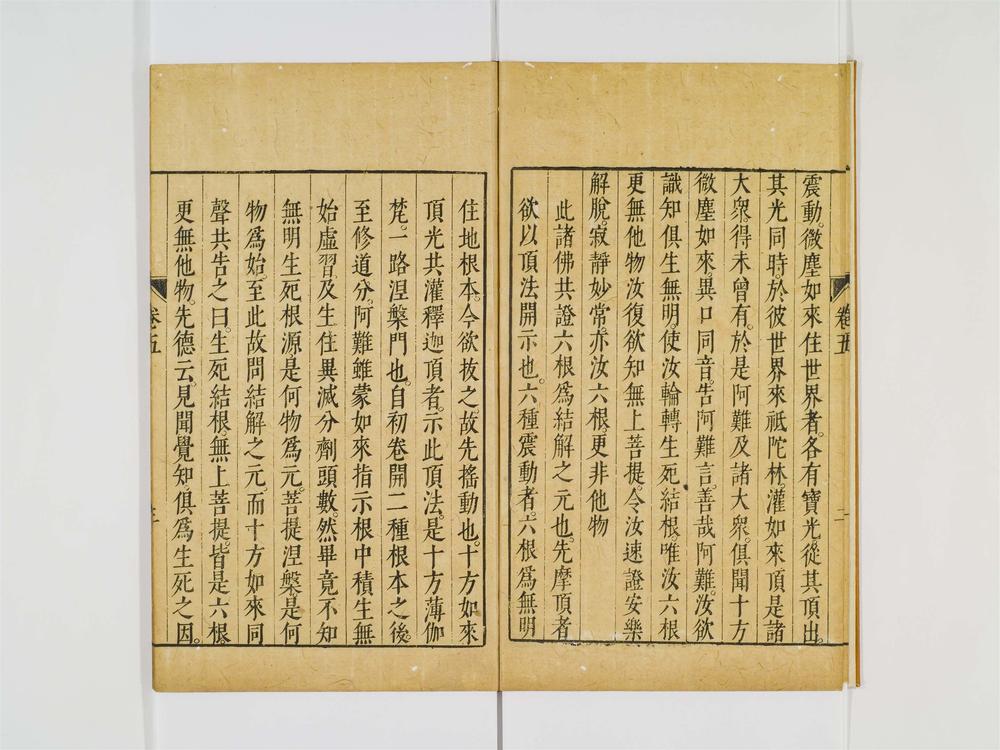 卷五
二
震動。微塵如來住世界者。各有寶光。從其頂出。
其光同時。於彼世界來祇陀林。灌如來頂是諸
大衆。得未曾有。於是阿難及諸大衆。俱聞十方
微塵如來。異口同音。告阿難言。善哉阿難。汝欲
識知俱生無明。使汝輪轉生死結根。唯汝六根
更無他物汝復欲知無上菩提。令汝速證安樂
解脫。寂靜妙常。亦汝六根。更非他物
此諸佛共證六根爲結解之元也。先摩頂者
欲以頂法開示也。六種震動者。六根爲無明
住地根本。今欲拔之。故先搖動也。十方如來
頂光共灌釋迦頂者。示此頂法。是十方薄伽
梵。一路涅槃門也。自初卷開二種根本之後。
至修道分。阿難雖蒙如來指示根中積生無
始虛習。及生住異滅分劑頭數。然畢竟不知
無明生死根源是何物爲元。菩提涅槃。是何
物爲始。至此故問結解之元。而十方如來同
聲共告之曰。生死結根。無上菩提。皆是六根。
更無他物。先德云。見聞覺知。俱爲生死之因。
卷五